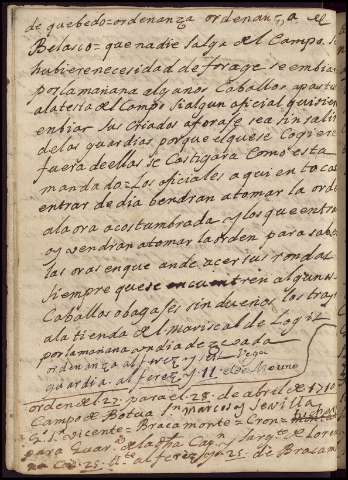 de quebedo = ordenanza ordenanza el
Belasco = que nadie salga del Campo. Si
hubiere necesidad de forage se embia
por la mañana algunos Caballos a pastu
a la testa del Campo Si algun oficial quisiere
enbiar sus Criados a foraje sea sin salir
de las guardias porque el que se Cogiere
fuera de ellos se Costigara Como esta
mandado = Los oficiales a quien toca
entrar de dia bendran a tomar la orde
a la ora acostumbrada y los que entra
oy vendran a tomar la orden para sabe
las oras en que ande acer sus rondas
siempre que se encuentren algunos
Caballos o bagajes sin dueños los tray
a la tienda del mariscal de Logis
por la mañana un dia de
ordenanza alferez y de Vega
guardia alferez y 11 el Mouno
orden del 27 para el 28 de abril de 1710
Campo de Botua Sn Marcio y Sevilla
Sn Vicente = Bracamonte = Cron =
para Guar de la Capn y Sargto de Loren
25 alferez y 25 de Bracam